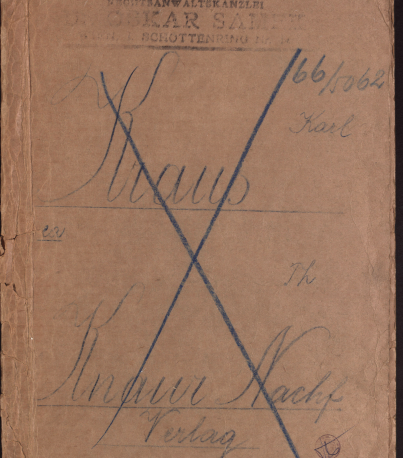 RECHTSANWALTSKANZLEI
OSKAR SAMEK
WIEN, I. SCHOTTENRING
66/5062
Karl
Kraus
ca
Th
Knaur Nachf
Verlag